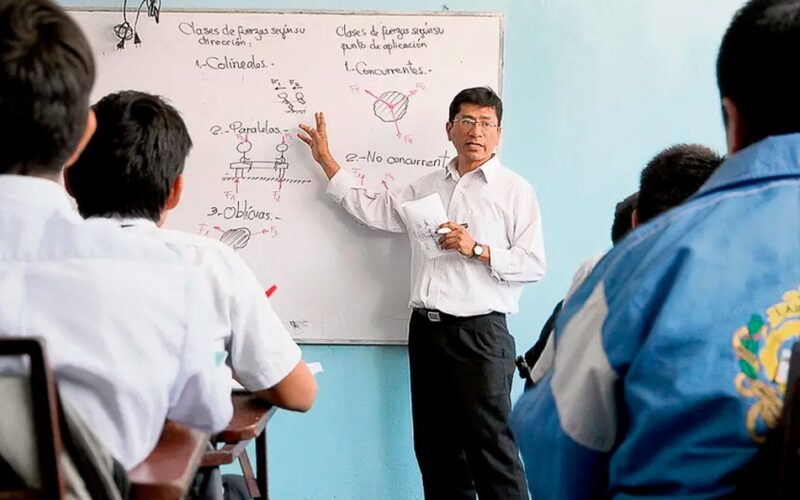 Clases de fuerzas según su
dirección:
1.- Colineales.-
F1 F2
2.- Paralelas.-
F1
F2
3.- Oblicuas.-
Clases de fuerzas según su
punto de aplicación
1.- Concurrentes.-
F1
F2
2.- No concurrent